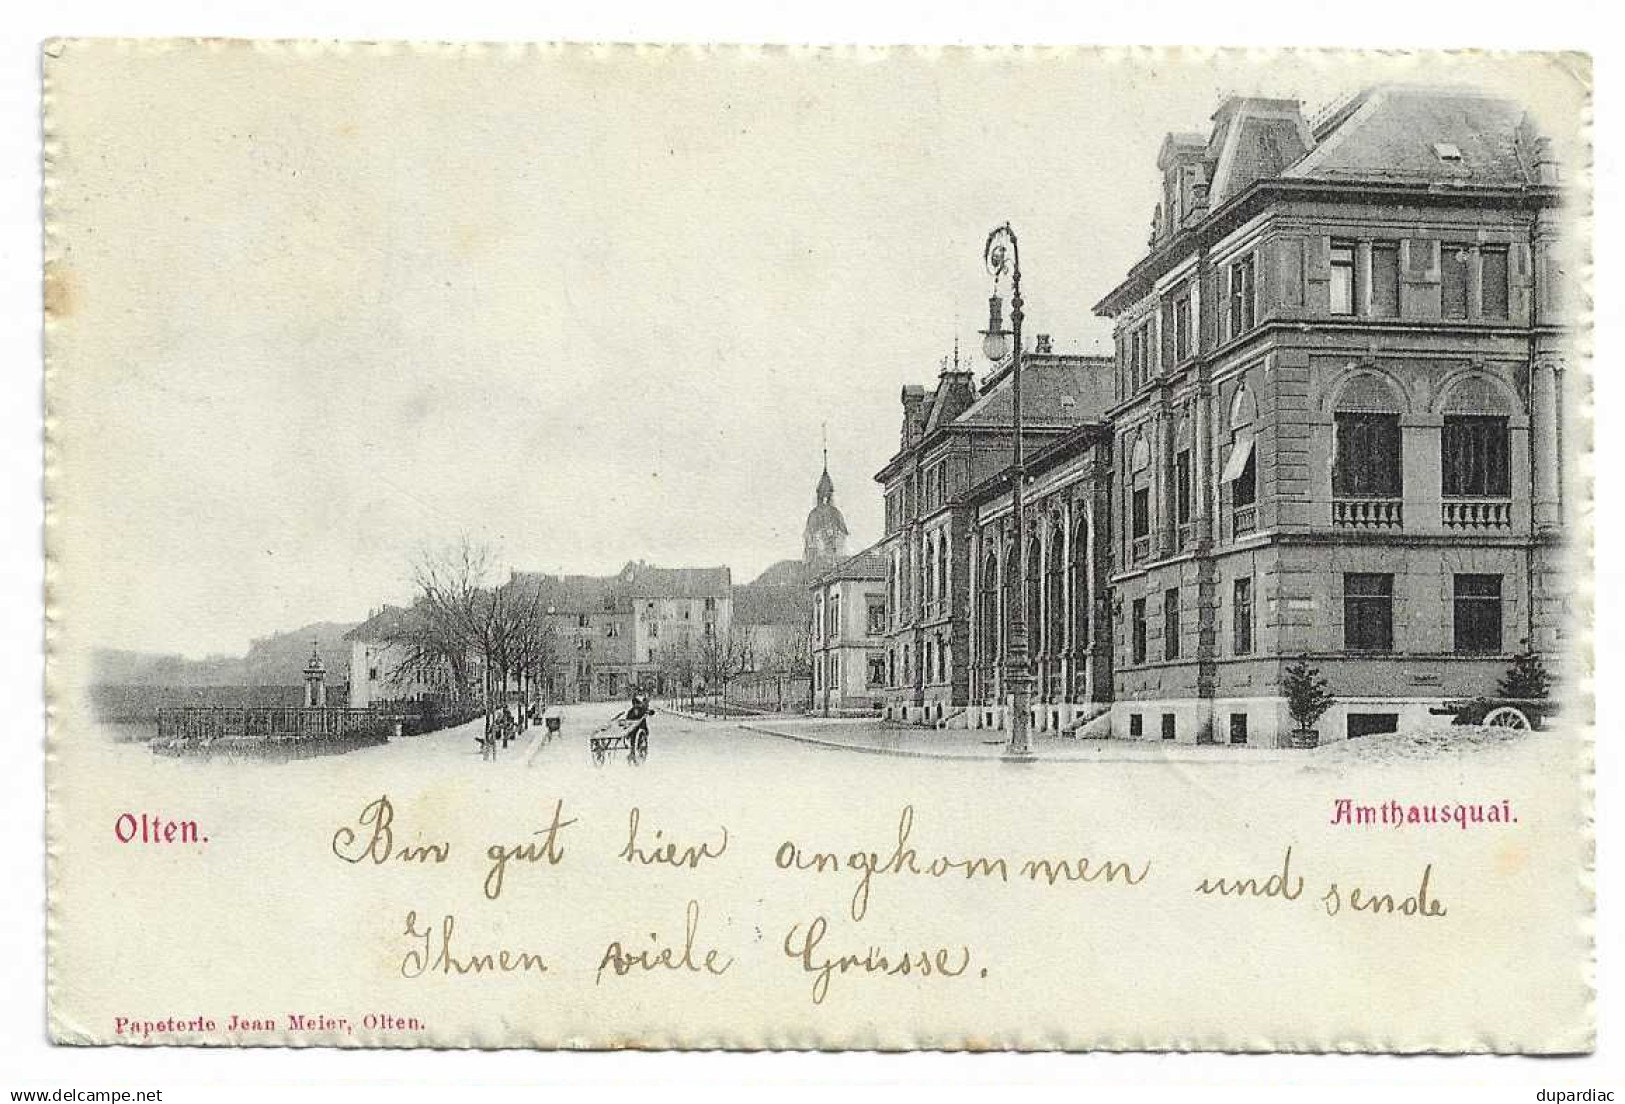 Olten.
Amthausquai.
Bin gut hier angekommen und sende
Ihnen viele Grüsse.
Papeterie Jean Meier, Olten.
dupardiac